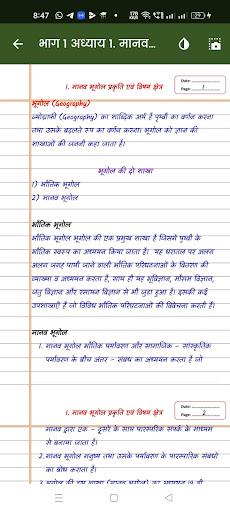 8:47
भाग 1 अध्याय 1. मानव...
Date:
Page: 1
1. मानव भूगोल प्रकृति एवं विषय क्षेत्र
भूगोल (Geography)
ज्योग्राफी (Geography) का शाब्दिक अर्थ हैं पृथ्वी का वर्णन करना
तथा उसके बदलते रूप का वर्णन करना। भूगोल को ज्ञान की
शाखाओं की जननी कहा जाता हैं।
भूगोल की दो शाखा
1) भौतिक भूगोल
2) मानव भूगोल
भौतिक भूगोल
भौतिक भूगोल भूगोल की एक प्रमुख शाखा हैं जिसमें पृथ्वी के
भौतिक स्वरूप का अध्ययन किया जाता हैं। यह धरातल पर अलग
अलग जगह पायी जाने वाली भौतिक परिघटनाओं के वितरण की
व्याख्या व अध्ययन करता हैं, साथ ही यह भूविज्ञान, मौसम विज्ञान,
जंतु विज्ञान और रसायन विज्ञान से भी जुड़ा हुआ हैं। इसकी कई
उपशाखाएँ हैं जो विविध भौतिक परिघटनाओं की विवेचना करती हैं।
मानव भूगोल
1. मानव भूगोल भौतिक पर्यावरण और सामाजिक - सांस्कृतिक
पर्यावरण के बीच अंतर - संबंध का अध्ययन करता हैं जो
Date:
Page: 2
1. मानव भूगोल प्रकृति एवं विषय क्षेत्र
मानव द्वारा एक - दूसरे के साथ पारस्परिक संपर्क के माध्यम
से बनाया जाता हैं।
2. मानव भूगोल मनुष्य तथा उसके पर्यावरण के पारस्परिक संबंधों
का बोध कराता हैं।